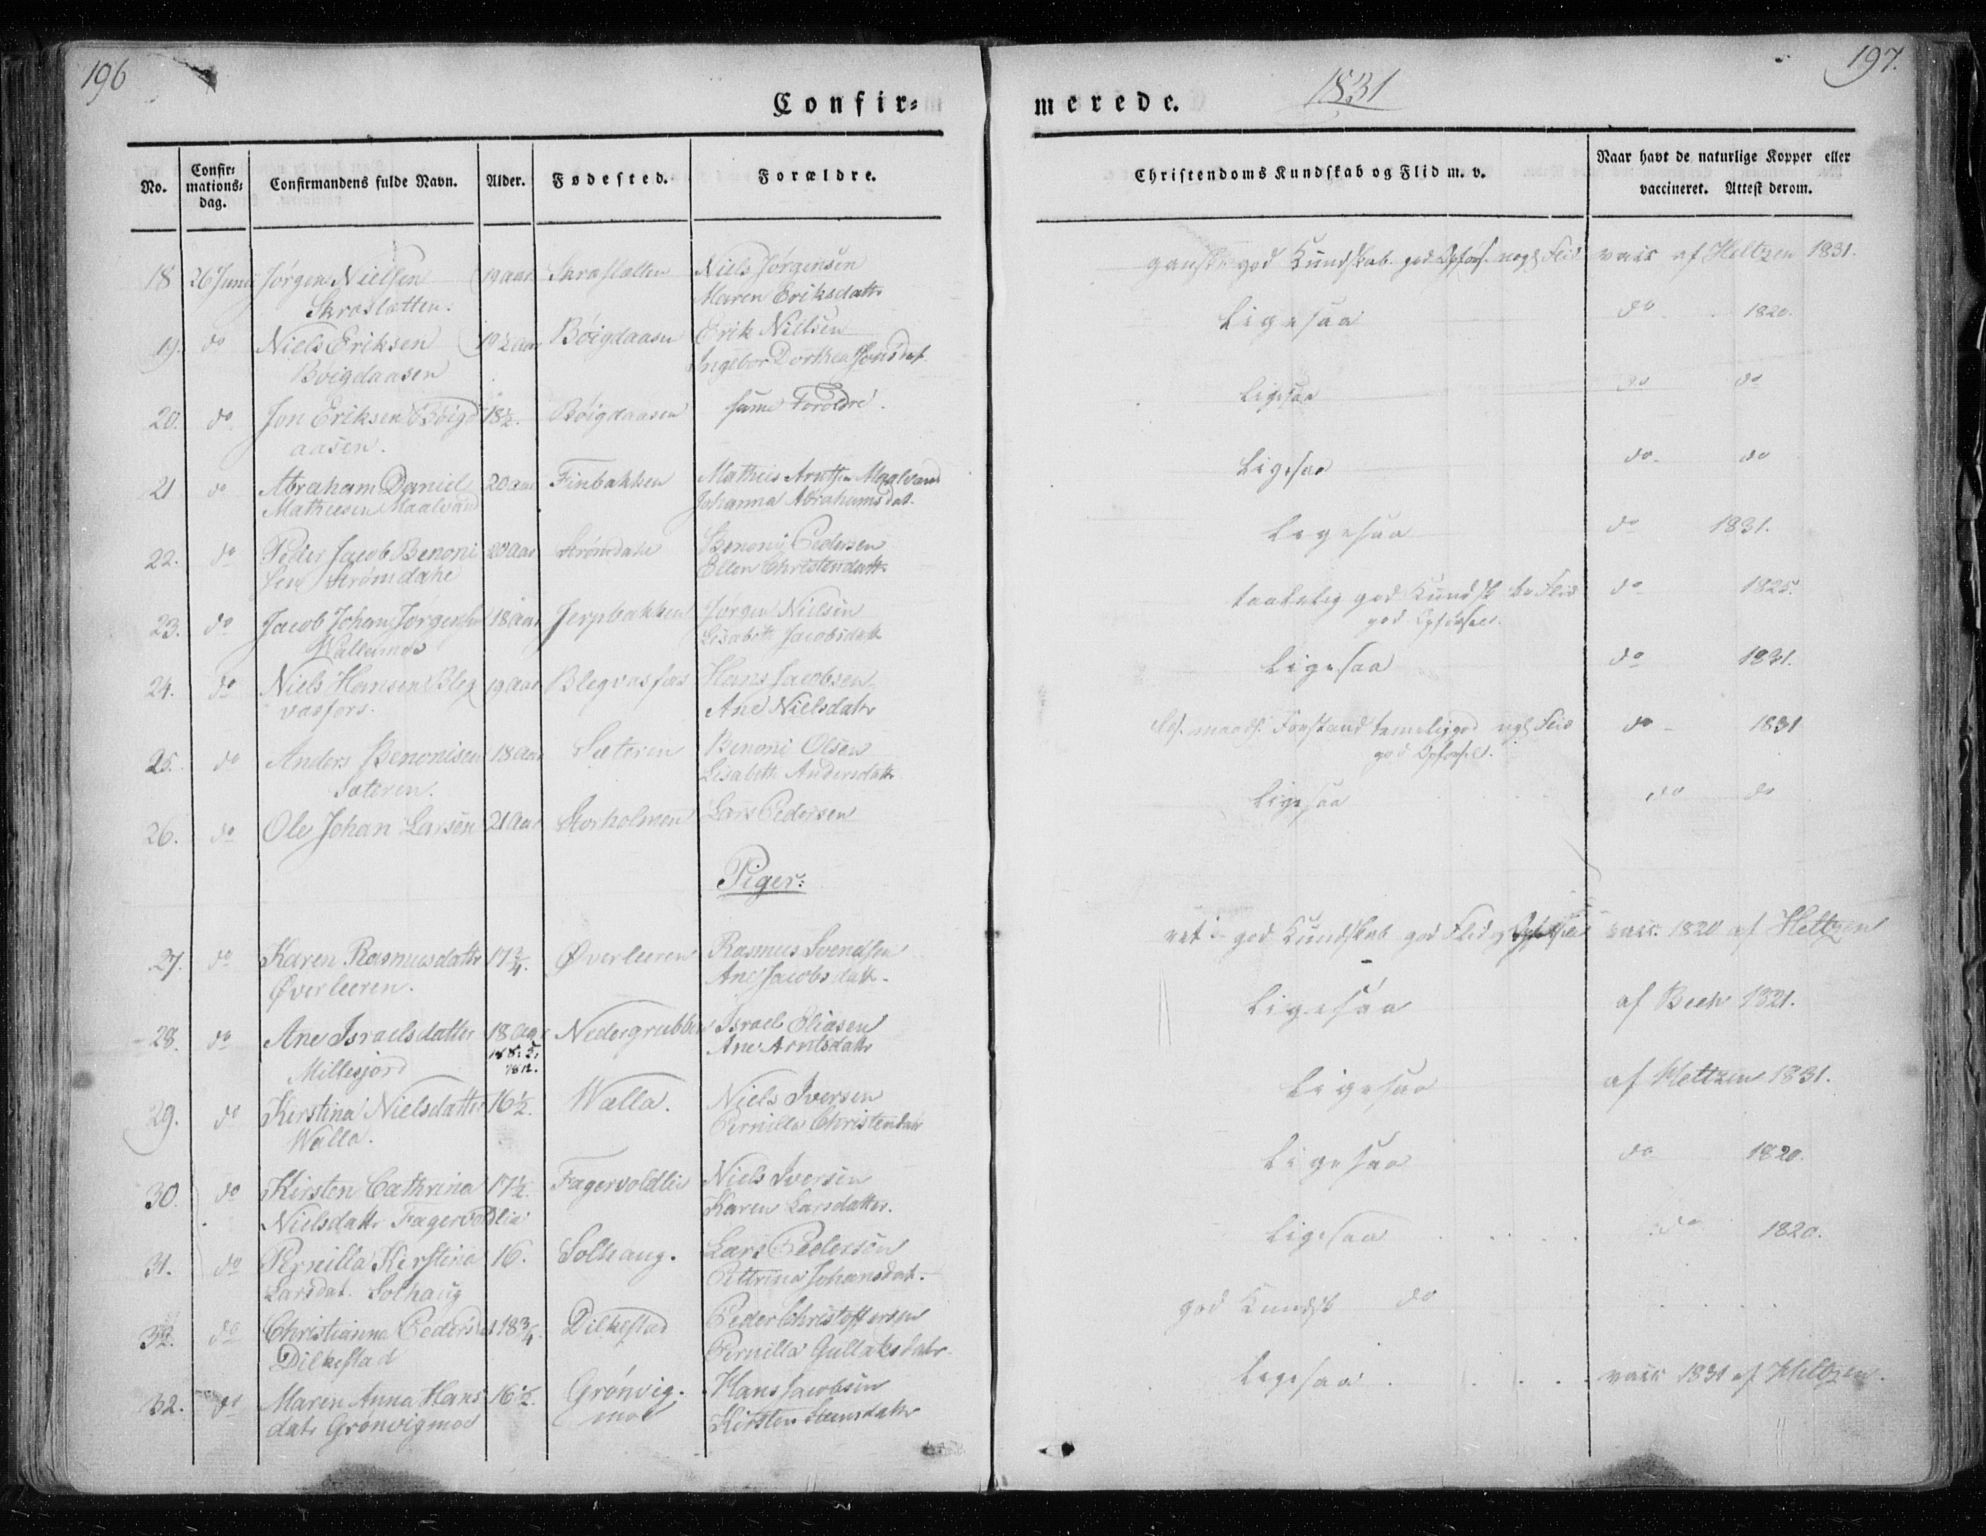 196
197.
Confir-
merede.
1831
No.
Confir-
mations-
dag.
Confirmandens fulde Navn.
Alder.
Fødested.
Forældre.
Christendoms Kundskab og Flid m. v.
Naar havt de naturlige Kopper eller
vaccineret. Attest derom.
18 26 Juni Jørgen Nielsen 19 aar Skraslatten Niels Jørgensen
Skraslatten. Maren Eriksdattr
ganske god Kundskab god Opførs. nogl Flid vacc af Heltzen 1831.
19. do Niels Eriksen 19½ aar Bøigdaasen Erik Nielsen
Bøigdaasen Ingebor Dorthea Jonsdat.
Ligesaa do 1820.
20. do Jon Eriksen Bøigd 18½. Bøigdaasen samme Forældre.
aasen.
Ligesaa do do
21 do Abraham Daniel 20 aar Finbakken Mathies Arntsen Maalvand
Mathiesen Maalvand Johanna Abrahamsdat.
Ligesaa do do
22. do Peder Jacob Benoni 20 Aar Strømdahe Benoni Pedersen
sen Strømdahe Ellen Christensdattr
Ligesaa do 1831.
23. do Jacob Johan Jørgensen 18 Aar Jerpbakken Jørgen Nielsen
Lisabeth Jacobsdattr
taalelig god Kundsk Flid do 1825.
god Opførsel.
24. do Niels Hansen Bleg 19 Aar Blegvasfors Hans Jacobsen
vasfors. Ane Nielsdattr
Ligesaa do 1831.
25. do Anders Benonisen 18 Aar Sæteren Benoni Olsen
Sæteren. Lisabeth Andersdattr
Forstand temelig god nogl Flid do 1831
god Opførsel.
26. do Ole Johan Larsen 21 Aar Storholmen Lars Pedersen
Ligesaa do do
Piger:
27. do Karen Rasmusdatter 17¾. Øverleeren Rasmus Svendsen
Øverleeren. Ane Jacobsdattr.
ret god Kundskab god Flid og Opførsel vacc. 1820 af Heltzen
28. do Ane Israelsdatter 18 Aar Nedergrubben Israel Eliasen
Millesjord Ane Arntsdattr
Ligesaa af Beck 1821.
29. do Kirstina Nielsdatter 16½. Walla. Niels Iversen
Walla. Pernilla Christensdatr
Ligesaa af Heltzen 1831.
30. do Kirsten Cathrina 17½. Fagervoldlie Niels Iversen
Nielsdattr Fagervoldlia Karen Larsdatter.
Ligesaa do 1820.
31. do Pernilla Kirstina 16. Solhaug. Lars Pedersen
Larsdat. Solhaug Pettrina Johansdat.
Ligesaa do 1820.
32. do Christianna Pedersdat 18¾. Dilkestad Peder Christoffersen
Dilkestad Pernilla Gullaksdatr.
god Kundsk do
32. do Maren Anna Hans 16½. Grönvig- Hans Jacobsen
datr Grønvigmoe moe Kirsten Steensdattr
Ligesaa vacc 1831 af Heltzen.